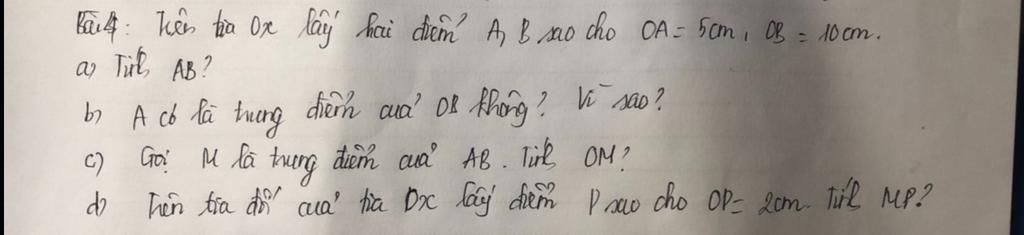 Bài 4: Trên tia Ox lấy hai điểm A, B sao cho OA = 5cm, OB = 10cm.
a) Tính AB?
b) A có là trung điểm của OB không? Vì sao?
c) Gọi M là trung điểm của AB. Tính OM?
d) Trên tia đối của tia Ox lấy điểm P sao cho OP = 2cm. Tính MP?